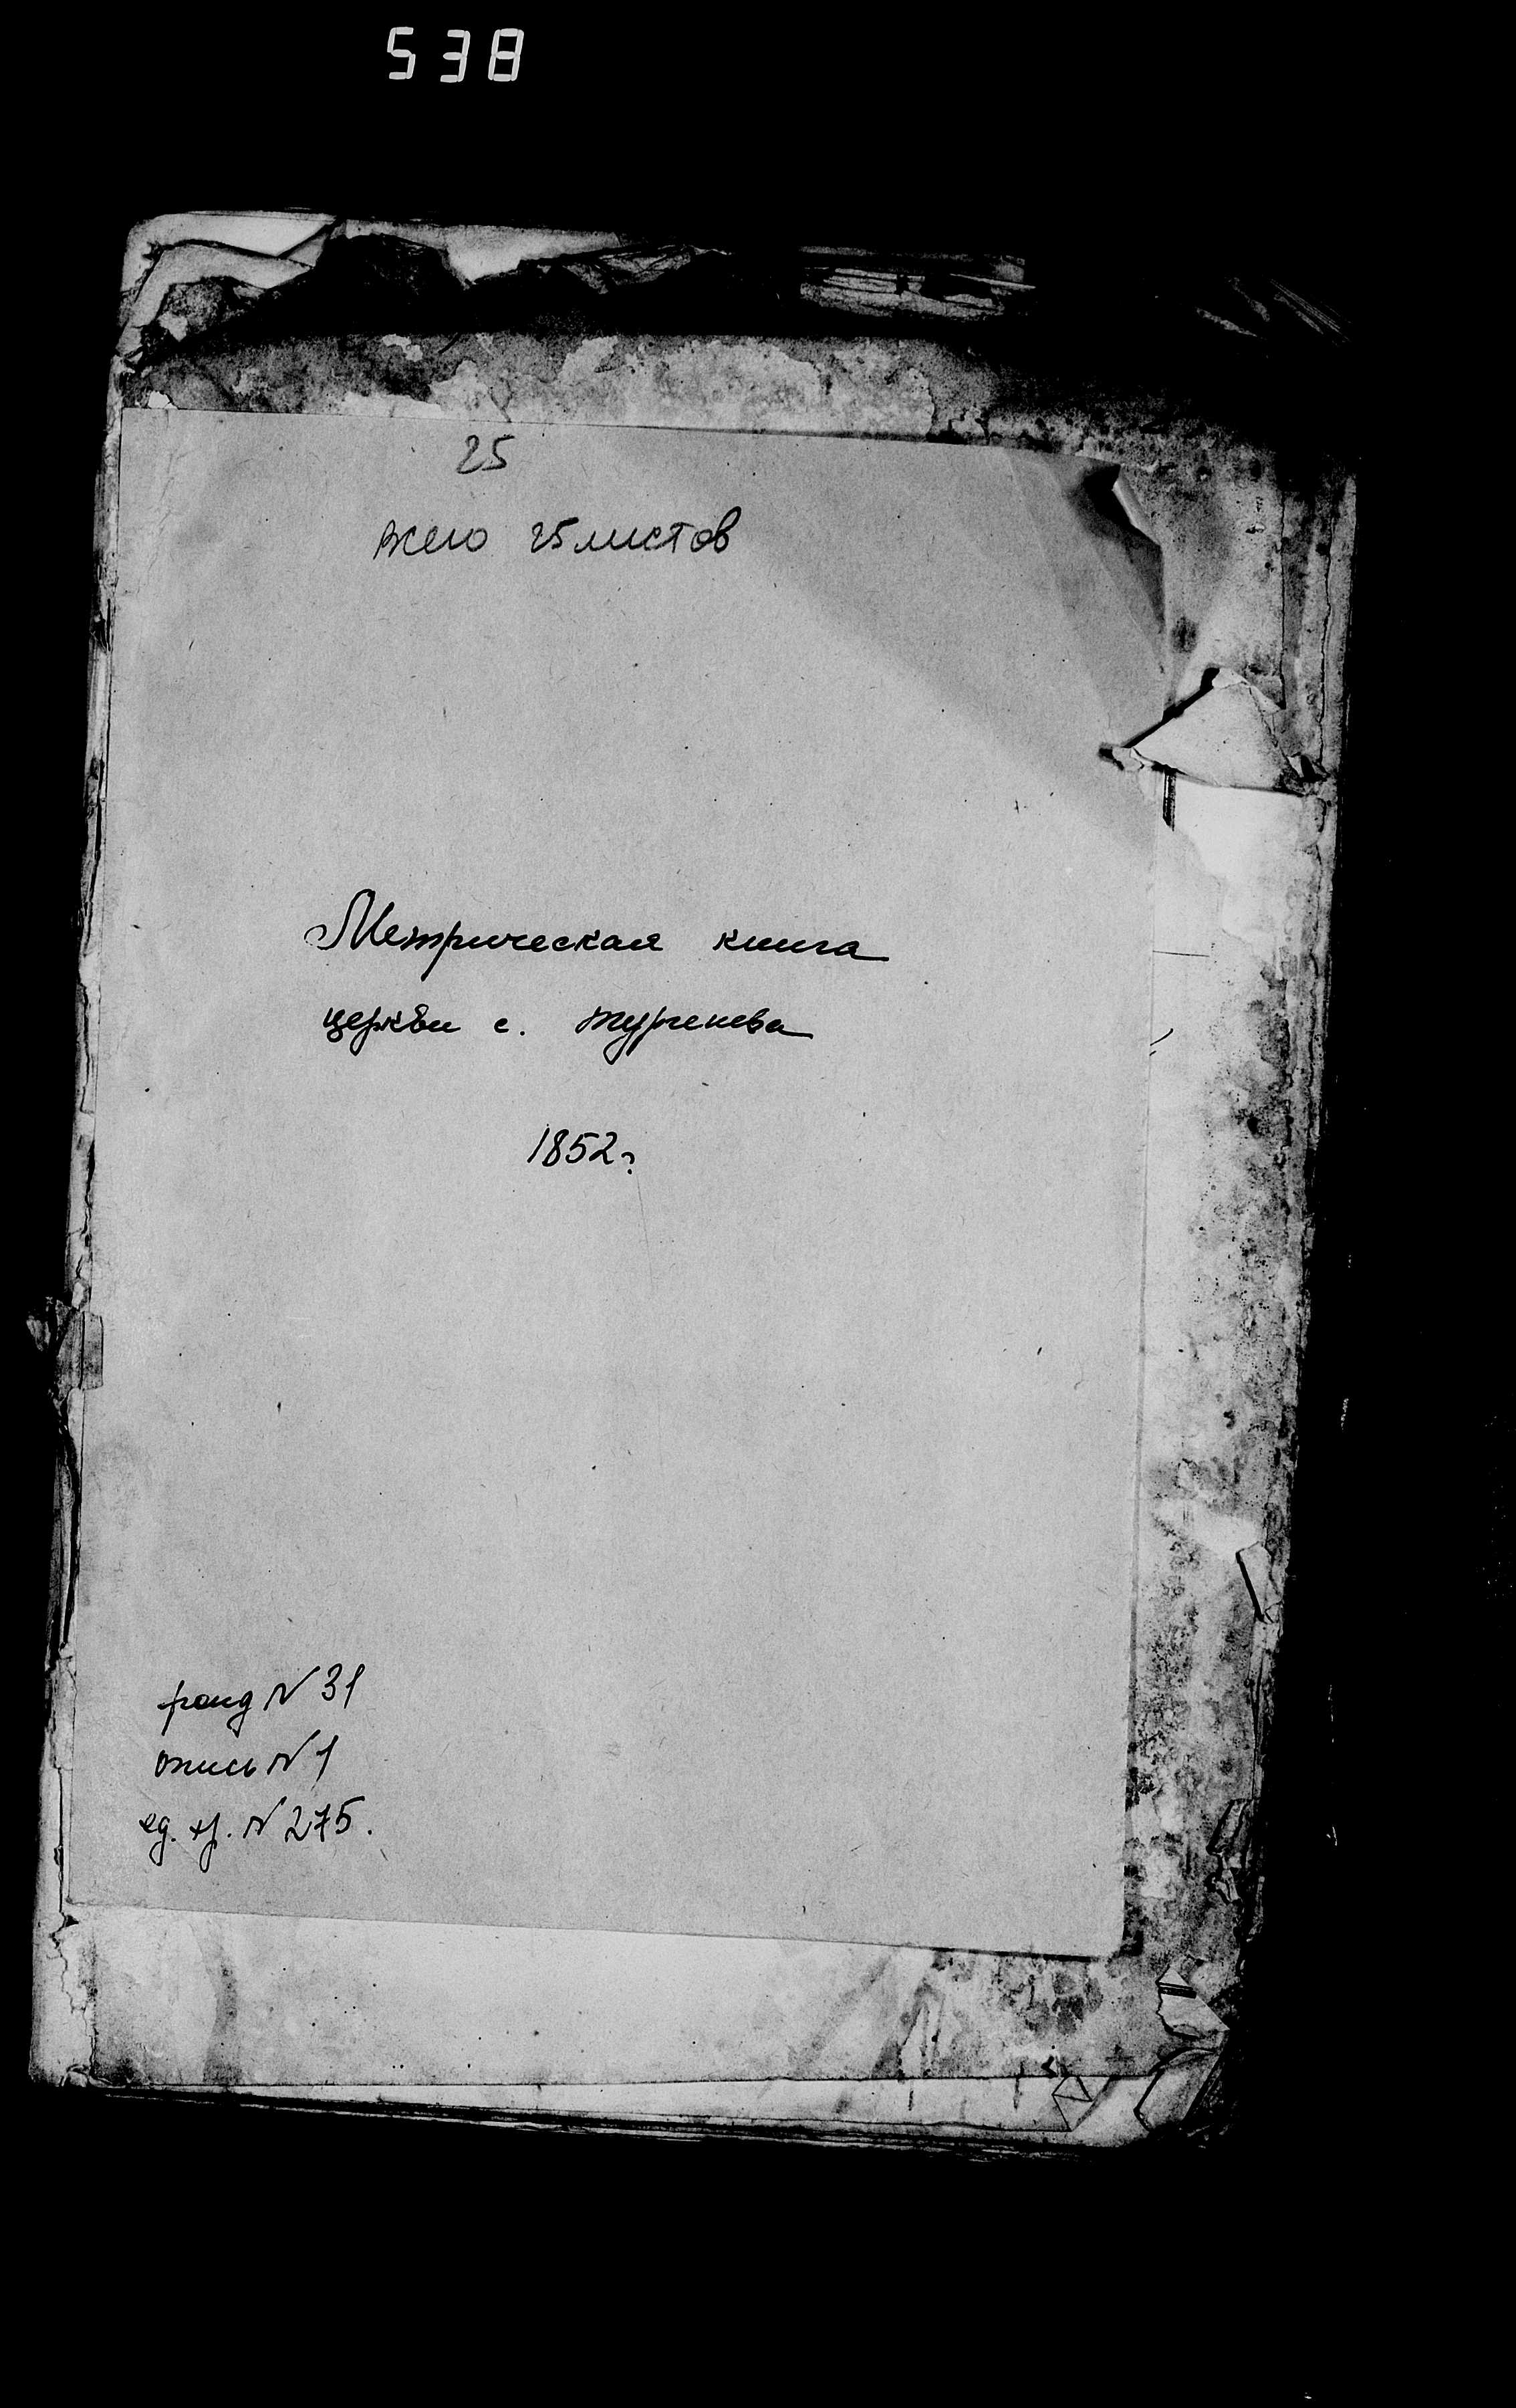 538
25
всего 25 листов
Метрическая книга
церкви с. Тургенева
1852г
фонд № 31
опись № 1
ед. хр. № 275.